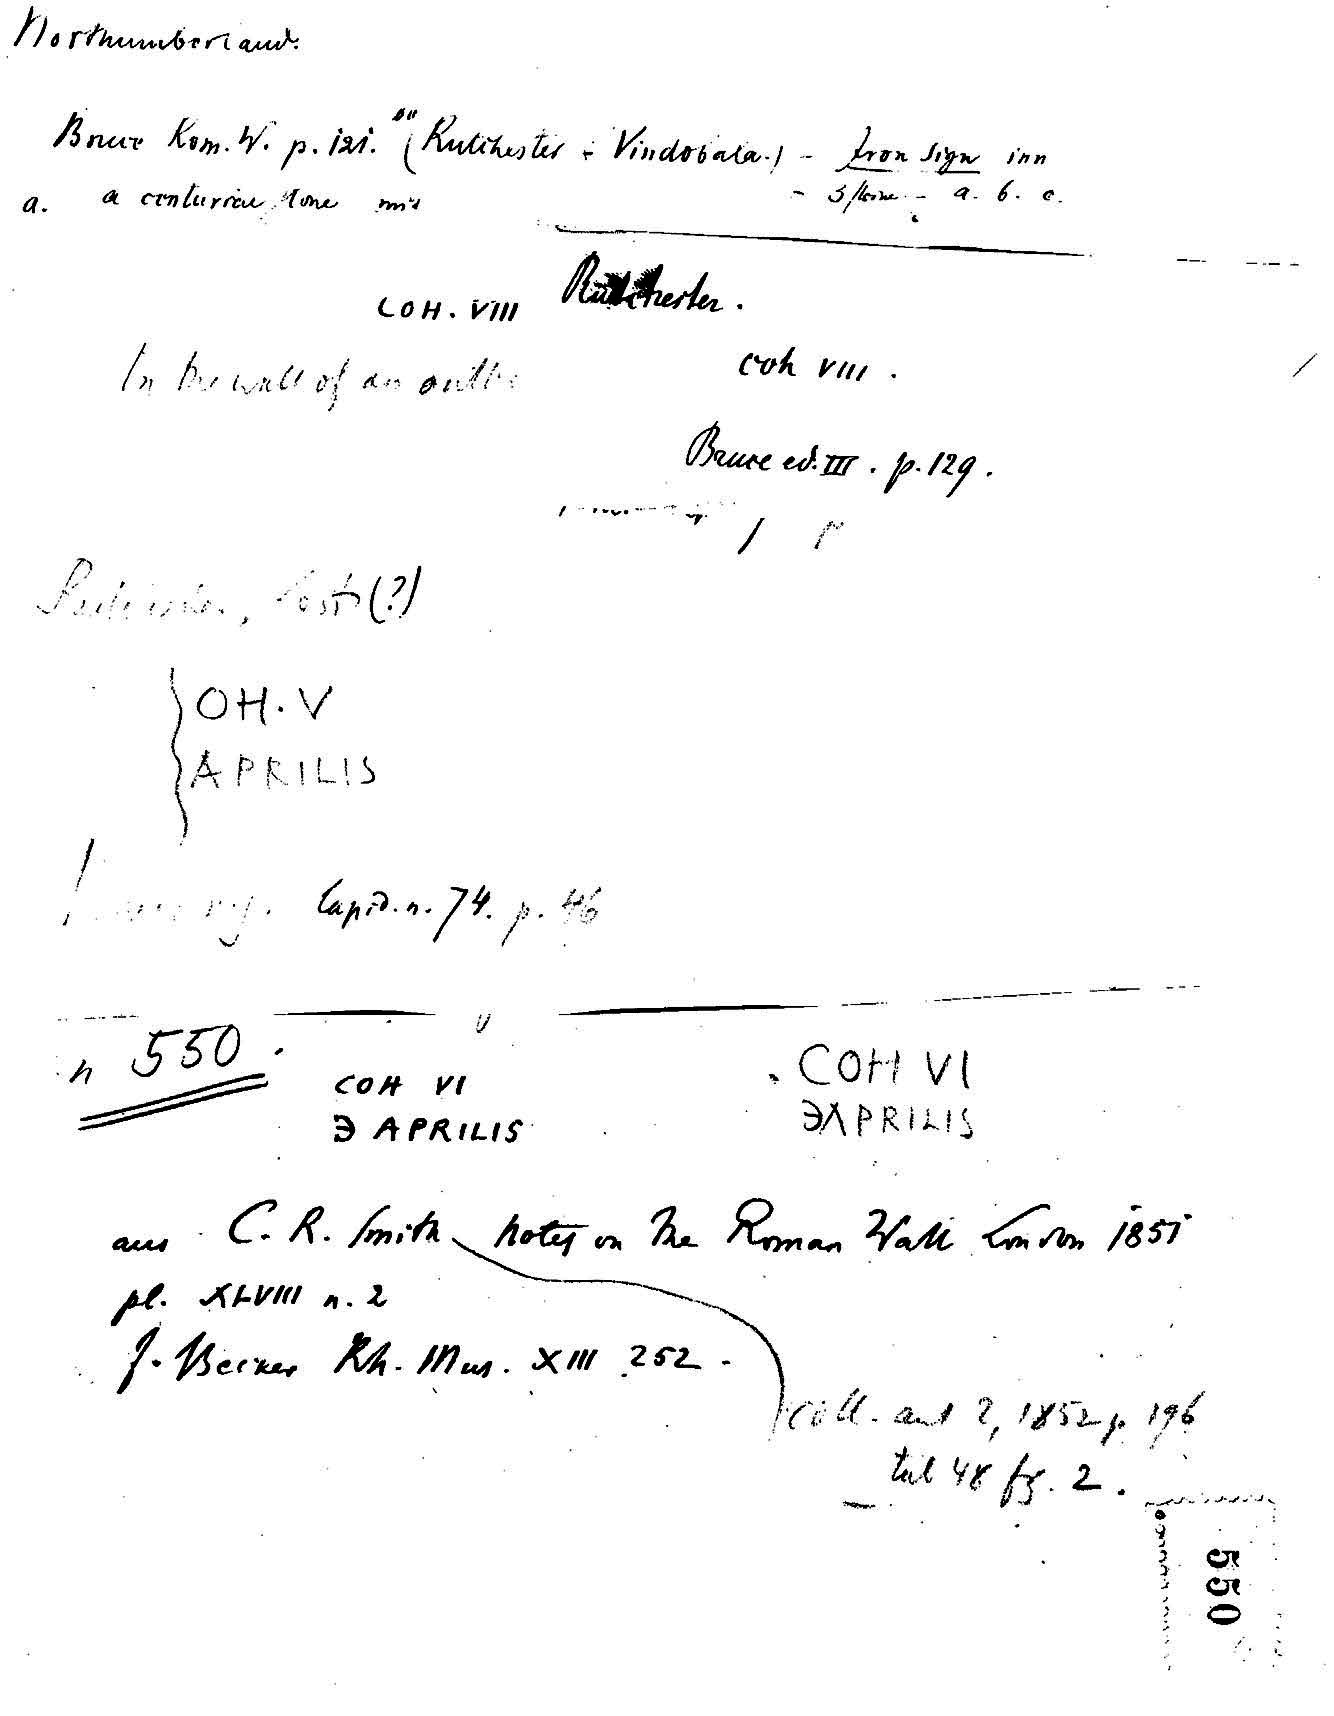 Northumberland.
Bruce Rom. W. p. 121. (Rutchester = Vindobala.) – Iron Sign inn
– 3 steine – a. b. c.
a. a centurial stone mit
Rutchester.
COH. VIII
coh VIII .
In the wall of an
Bruce ed. III . p. 129 .
lost (?)
OH. V
APRILIS
Lapid. n. 74. p. 46
n 550 .
COH VI
Ɔ APRILIS
COH VI
ƆAPRILIS
aus C. R. Smith notes on the Roman Wall London 1851
pl. XLVIII n. 2
J. Becker Rh. Mus. XIII 252 .
coll. ant 2, 1852 p. 196
tab 48 fg. 2 .
550